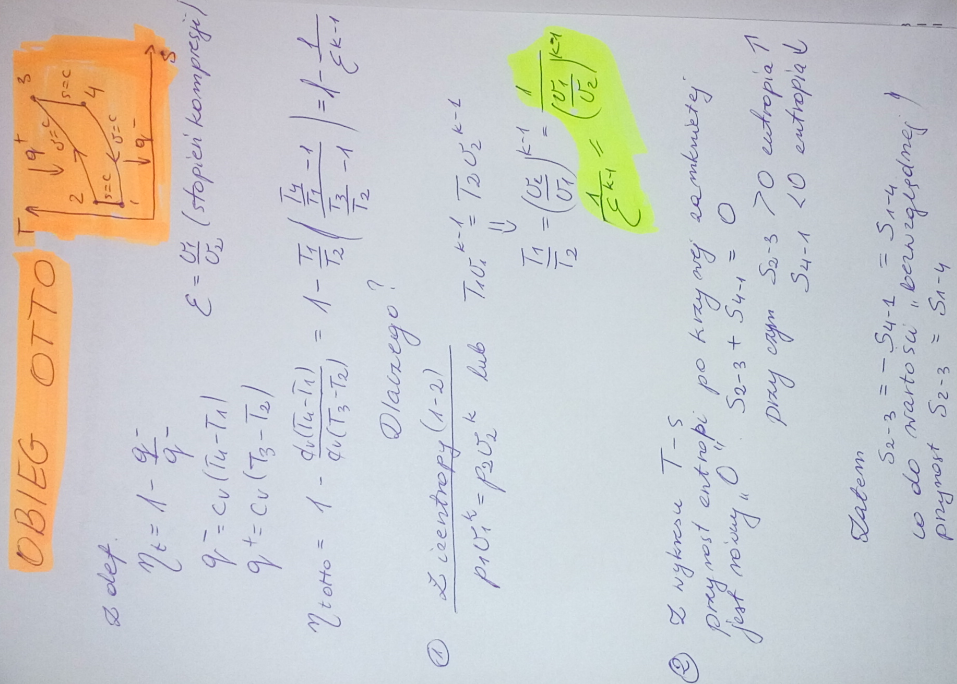 OBIEG OTTO
T
q+
2
3
v=c
s=c
s=c
4
v=c
1
q-
s
Z def.
ηt = 1 - q-/q-
q- = cv(T4-T1)
q+ = cv(T3-T2)
ε = v1/v2 (stopień kompresji)
ηtotto = 1 - cv(T4-T1)/cv(T3-T2) = 1 - T1/T2 ((T4/T1 - 1)/(T3/T2 - 1)) = 1 - 1/ε^k-1
Dlaczego?
① Z izentropy (1-2)
p1v1^k = p2v2^k lub T1v1^k-1 = T2v2^k-1
⇓
T1/T2 = (v2/v1)^k-1 = 1/(v1/v2)^k-1
1/ε^k-1 =
② Z wykresu T-S
przyrost entropi po krzywej zamkniętej
jest równy „0" S2-3 + S4-1 = 0
przy czym S2-3 > 0 entropia ↑
S4-1 < 0 entropia ↓
Zatem
S2-3 = - S4-1 = S1-4
co do wartości „bezwzględnej"
przyrost S2-3 = S1-4